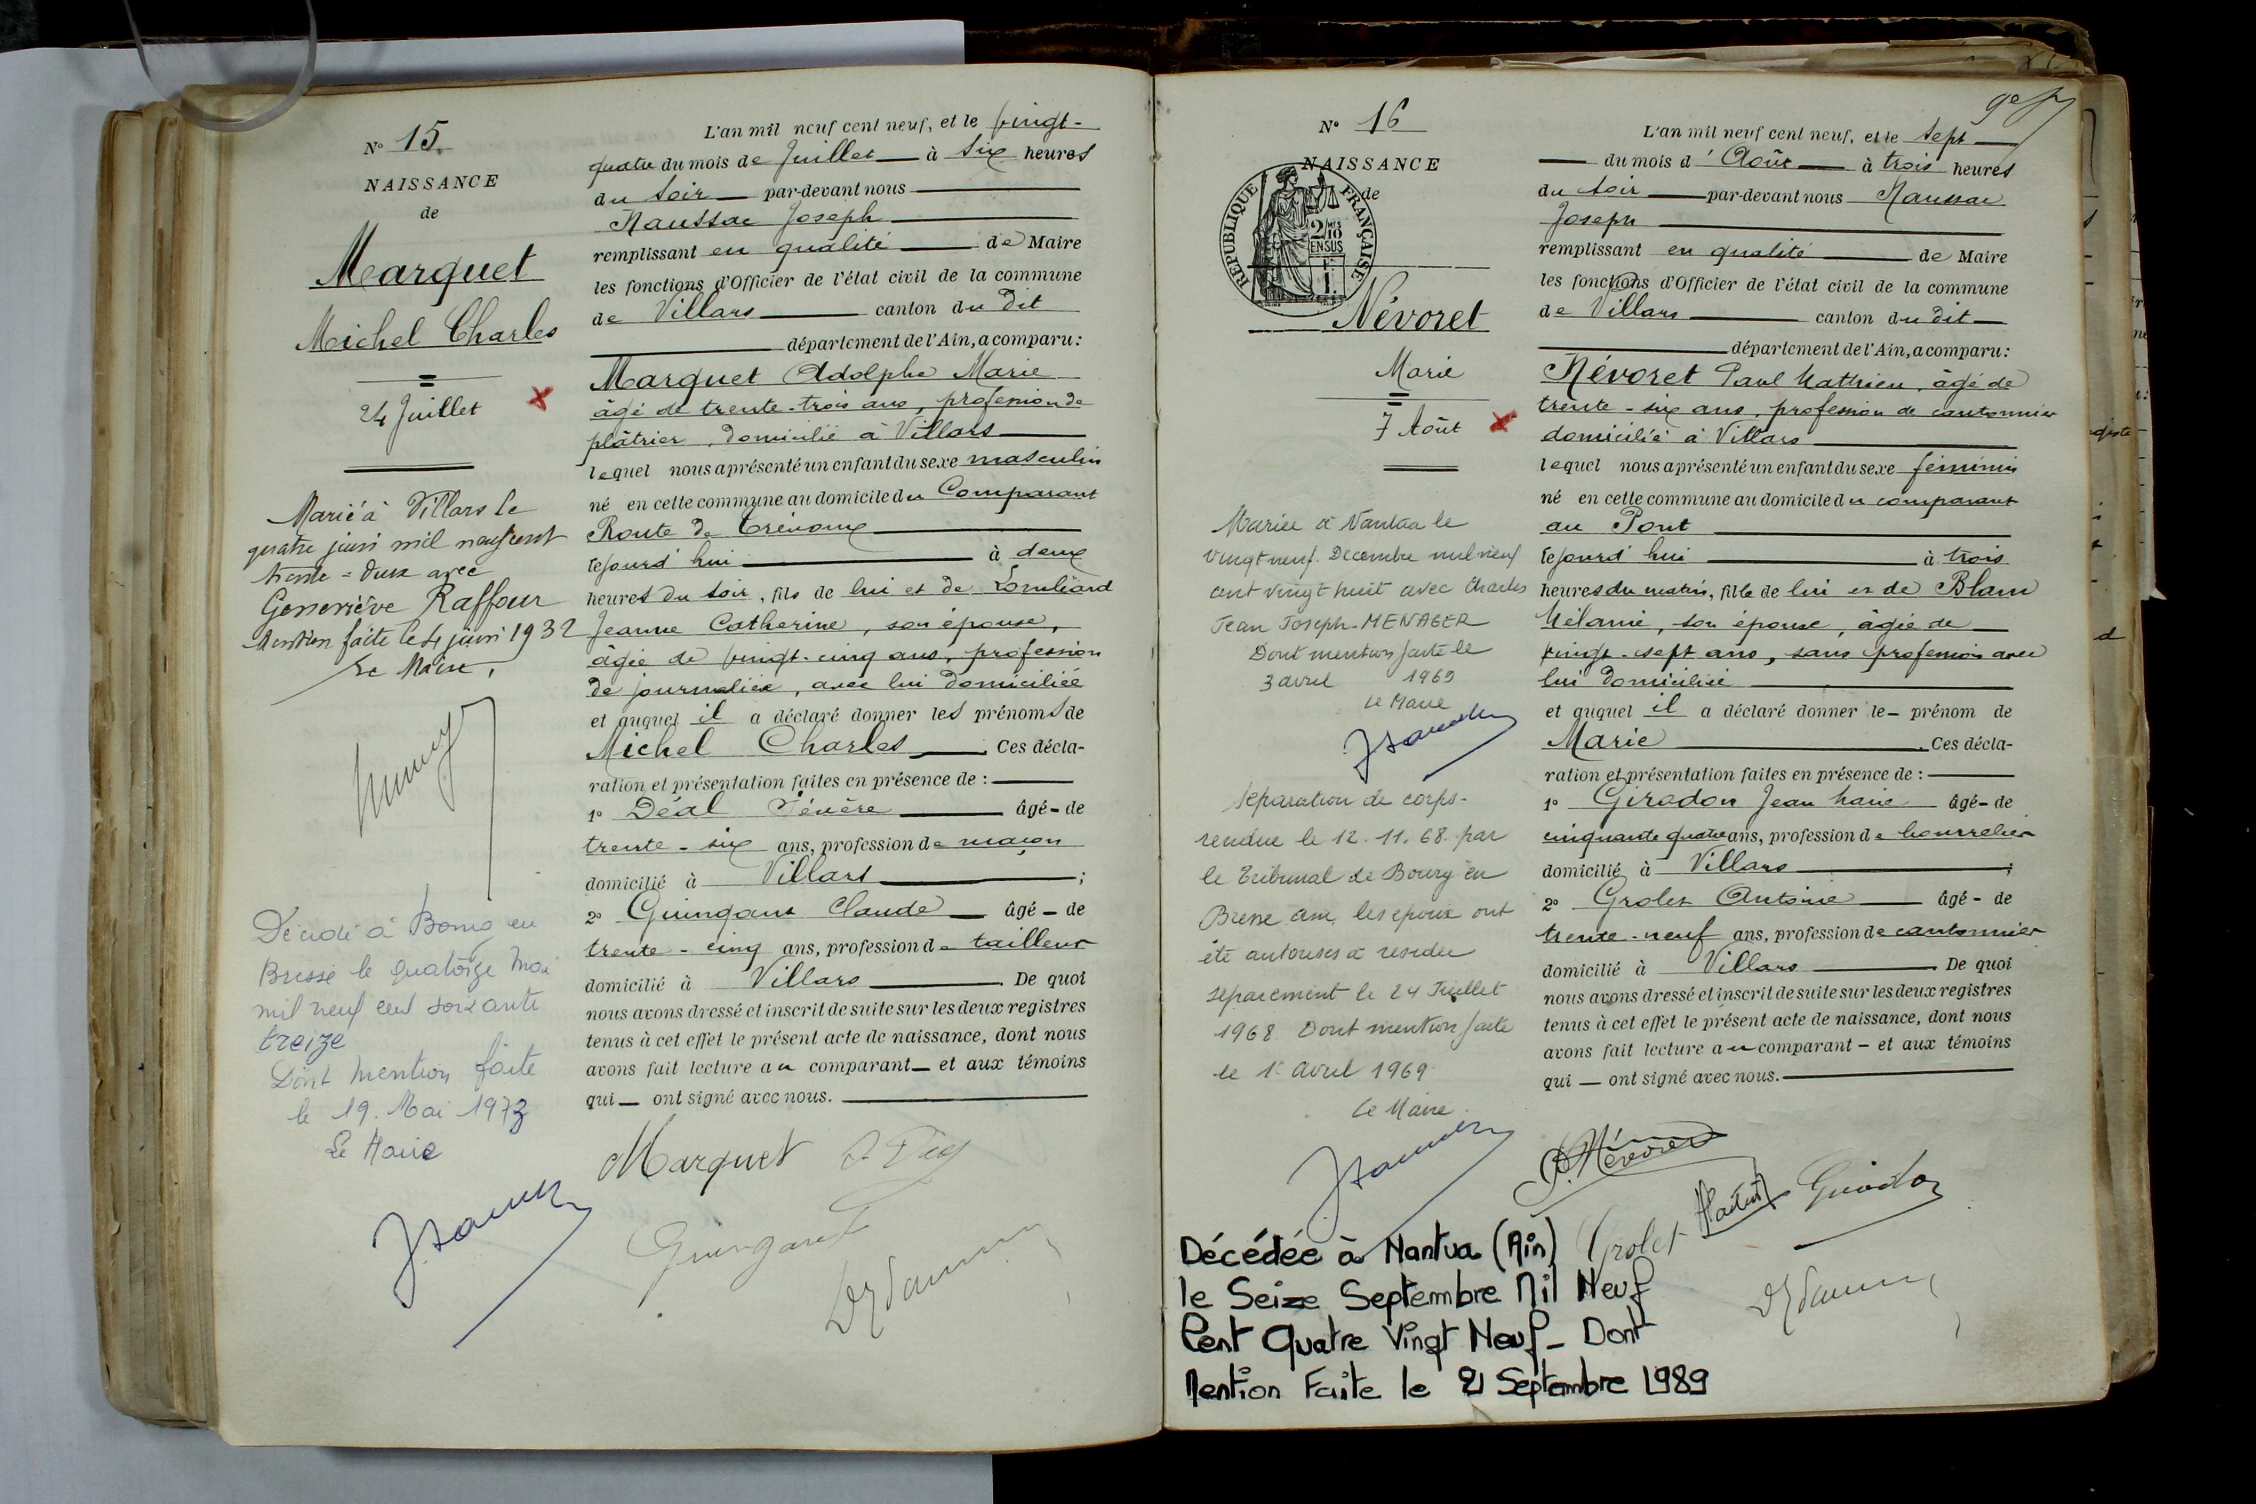 N° 15.
NAISSANCE
de
Marquet
Michel Charles
24 Juillet
Marié à Villars le
quatre juin mil neuf cent
trente = deux avec
Geneviève Raffour
Mention faite le 4 juin 1932
Le Maire,
Décédé à Bourg en
Bresse le quatorze Mai
mil neuf cent soixante
treize
Dont mention faite
le 19. Mai 1973
Le Maire
L'an mil neuf cent neuf, et le vingt-
quatre du mois de Juillet à six heures
du soir par-devant nous
Naussac Joseph
remplissant en qualité de Maire
les fonctions d'Officier de l'état civil de la commune
de Villars canton du dit
département de l'Ain, a comparu :
Marquet Adolphe Marie
âgé de trente-trois ans, profession de
plâtrier, domicilié à Villars
lequel nous a présenté un enfant du sexe masculin
né en cette commune au domicile du Comparant
Route de Trévoux
cejourd'hui à deux
heures du soir, fils de lui et de
Jeanne Catherine, son épouse,
âgée de vingt-cinq ans, profession
de journalière, avec lui domiciliée
et auquel il a déclaré donner les prénoms de
Michel Charles Ces décla-
ration et présentation faites en présence de :
1° Déal Sévère âgé - de
trente - six ans, profession de maçon
domicilié à Villars ;
2° Guingant Claude âgé - de
trente - cinq ans, profession de tailleur
domicilié à Villars De quoi
nous avons dressé et inscrit de suite sur les deux registres
tenus à cet effet le présent acte de naissance, dont nous
avons fait lecture au comparant et aux témoins
qui ont signé avec nous.
Marquet
Guingant
9e
N° 16
NAISSANCE
de
REPUBLIQUE FRANÇAISE
2/10
EN SUS
Névoret
Marie
7 Août
Mariée à Nantua le
vingt neuf Décembre mil neuf
cent vingt huit avec Charles
Jean Joseph MENAGER
Dont mention faite le
3 avril 1969
Le Maire
Séparation de corps
rendue le 12. 11. 68. par
le Tribunal de Bourg en
Bresse Ain, les époux ont
été autorisés à résider
séparément le 24 Juillet
1968 Dont mention faite
le 1° avril 1969
Le Maire
L'an mil neuf cent neuf, et le sept
du mois d'Août à trois heures
du soir par-devant nous Naussac
Joseph
remplissant en qualité de Maire
les fonctions d'Officier de l'état civil de la commune
de Villars canton du dit
département de l'Ain, a comparu :
Névoret Paul Mathieu, âgé de
trente - six ans, profession de cantonnier
domicilié à Villars
lequel nous a présenté un enfant du sexe féminin
né en cette commune au domicile du comparant
au Pont
cejourd'hui à trois
heures du matin, fille de lui et de Blanc
Mélanie, son épouse, âgée de
vingt-sept ans, sans profession avec
lui domiciliée
et auquel il a déclaré donner le prénom de
Marie Ces décla-
ration et présentation faites en présence de :
1° Girodon Jean Marie âgé - de
cinquante quatre ans, profession de bourrelier
domicilié à Villars ;
2° Grolet Antoine âgé - de
trente-neuf ans, profession de cantonnier
domicilié à Villars De quoi
nous avons dressé et inscrit de suite sur les deux registres
tenus à cet effet le présent acte de naissance, dont nous
avons fait lecture au comparant - et aux témoins
qui ont signé avec nous.
P. Névoret
Grolet
Girodon
Décédée à Nantua (Ain)
le Seize Septembre Mil Neuf
Cent Quatre Vingt Neuf - Dont
Mention Faite le 21 Septembre 1989